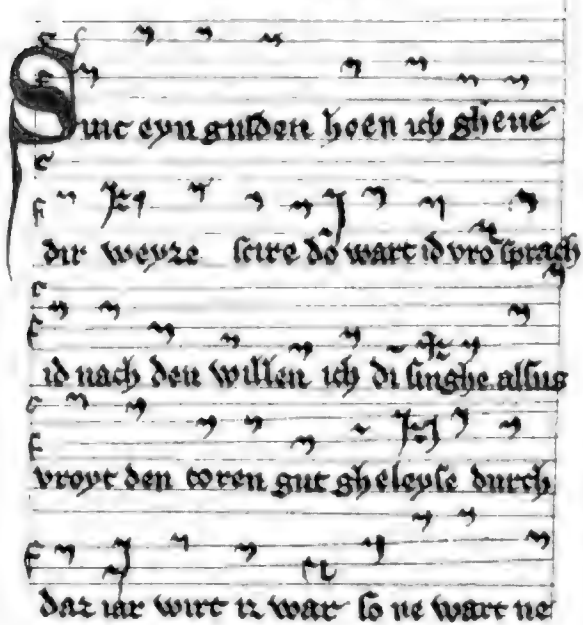 Sinc eyn gulden hoen ich gheue
dir weyze scire do wart id vro sprach
id nach den willen ich di singhe alsus
vroyt den toren gut gheleyse durch
daz iar wirt iz war so ne wart ne